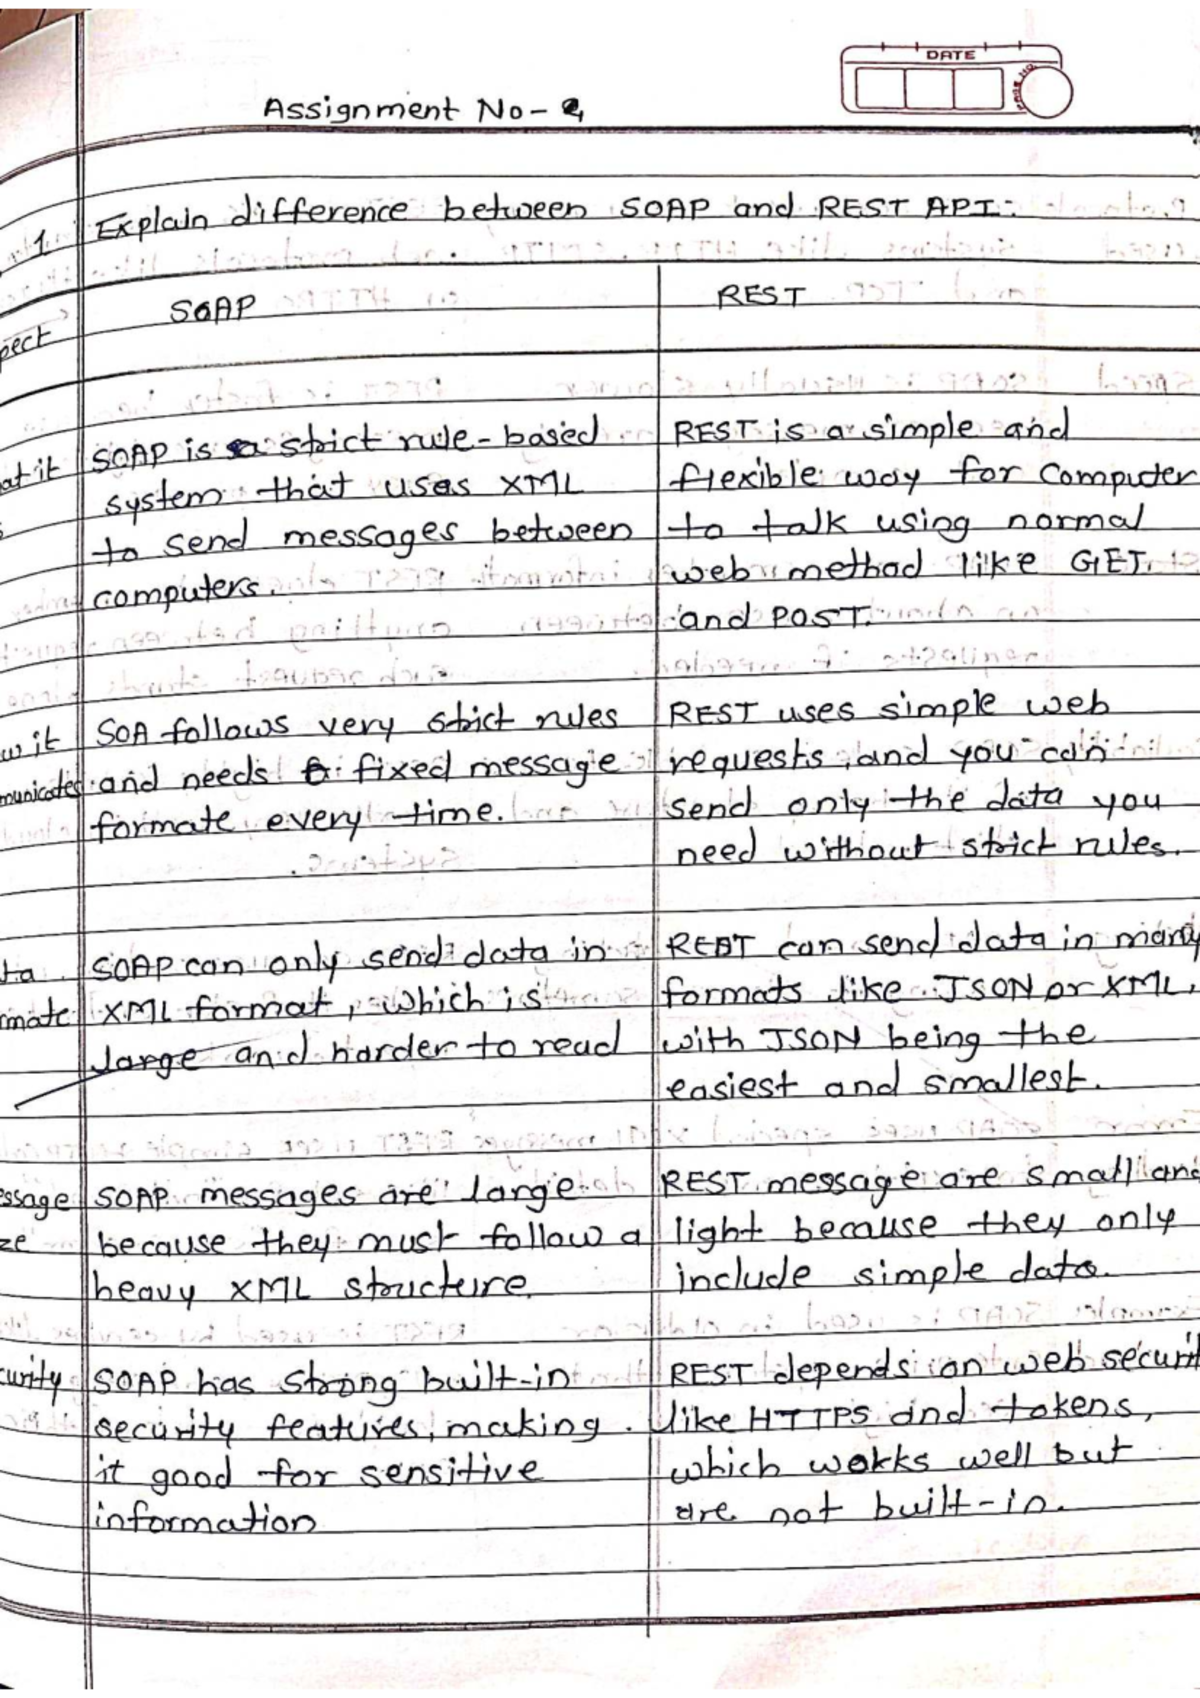 DATE
Assignment No-2
1 Explain difference between SOAP and REST API:
pect SOAP REST
at it SOAP is a strict rule-based
system that uses XML
to send messages between
computers.
REST is a simple and
flexible way for Computer
to talk using normal
web method like GET
and POST.
w it
municates
SOA follows very strict rules
and needs fixed message
formate every time.
REST uses simple web
requests, and you can
send only the data you
need without strict rules.
ta
rmate
SOAP can only send data in
XML format, which is
large and harder to read
REST can send data in many
formats like JSON or XML,
with JSON being the
easiest and smallest.
essage
ze
SOAP messages are large
because they must follow a
heavy XML structure.
REST message are small and
light because they only
include simple data.
curity
SOAP has strong built-in
security features, making
it good for sensitive
information
REST depends on web securit
like HTTPS and tokens,
which works well but
are not built-in.